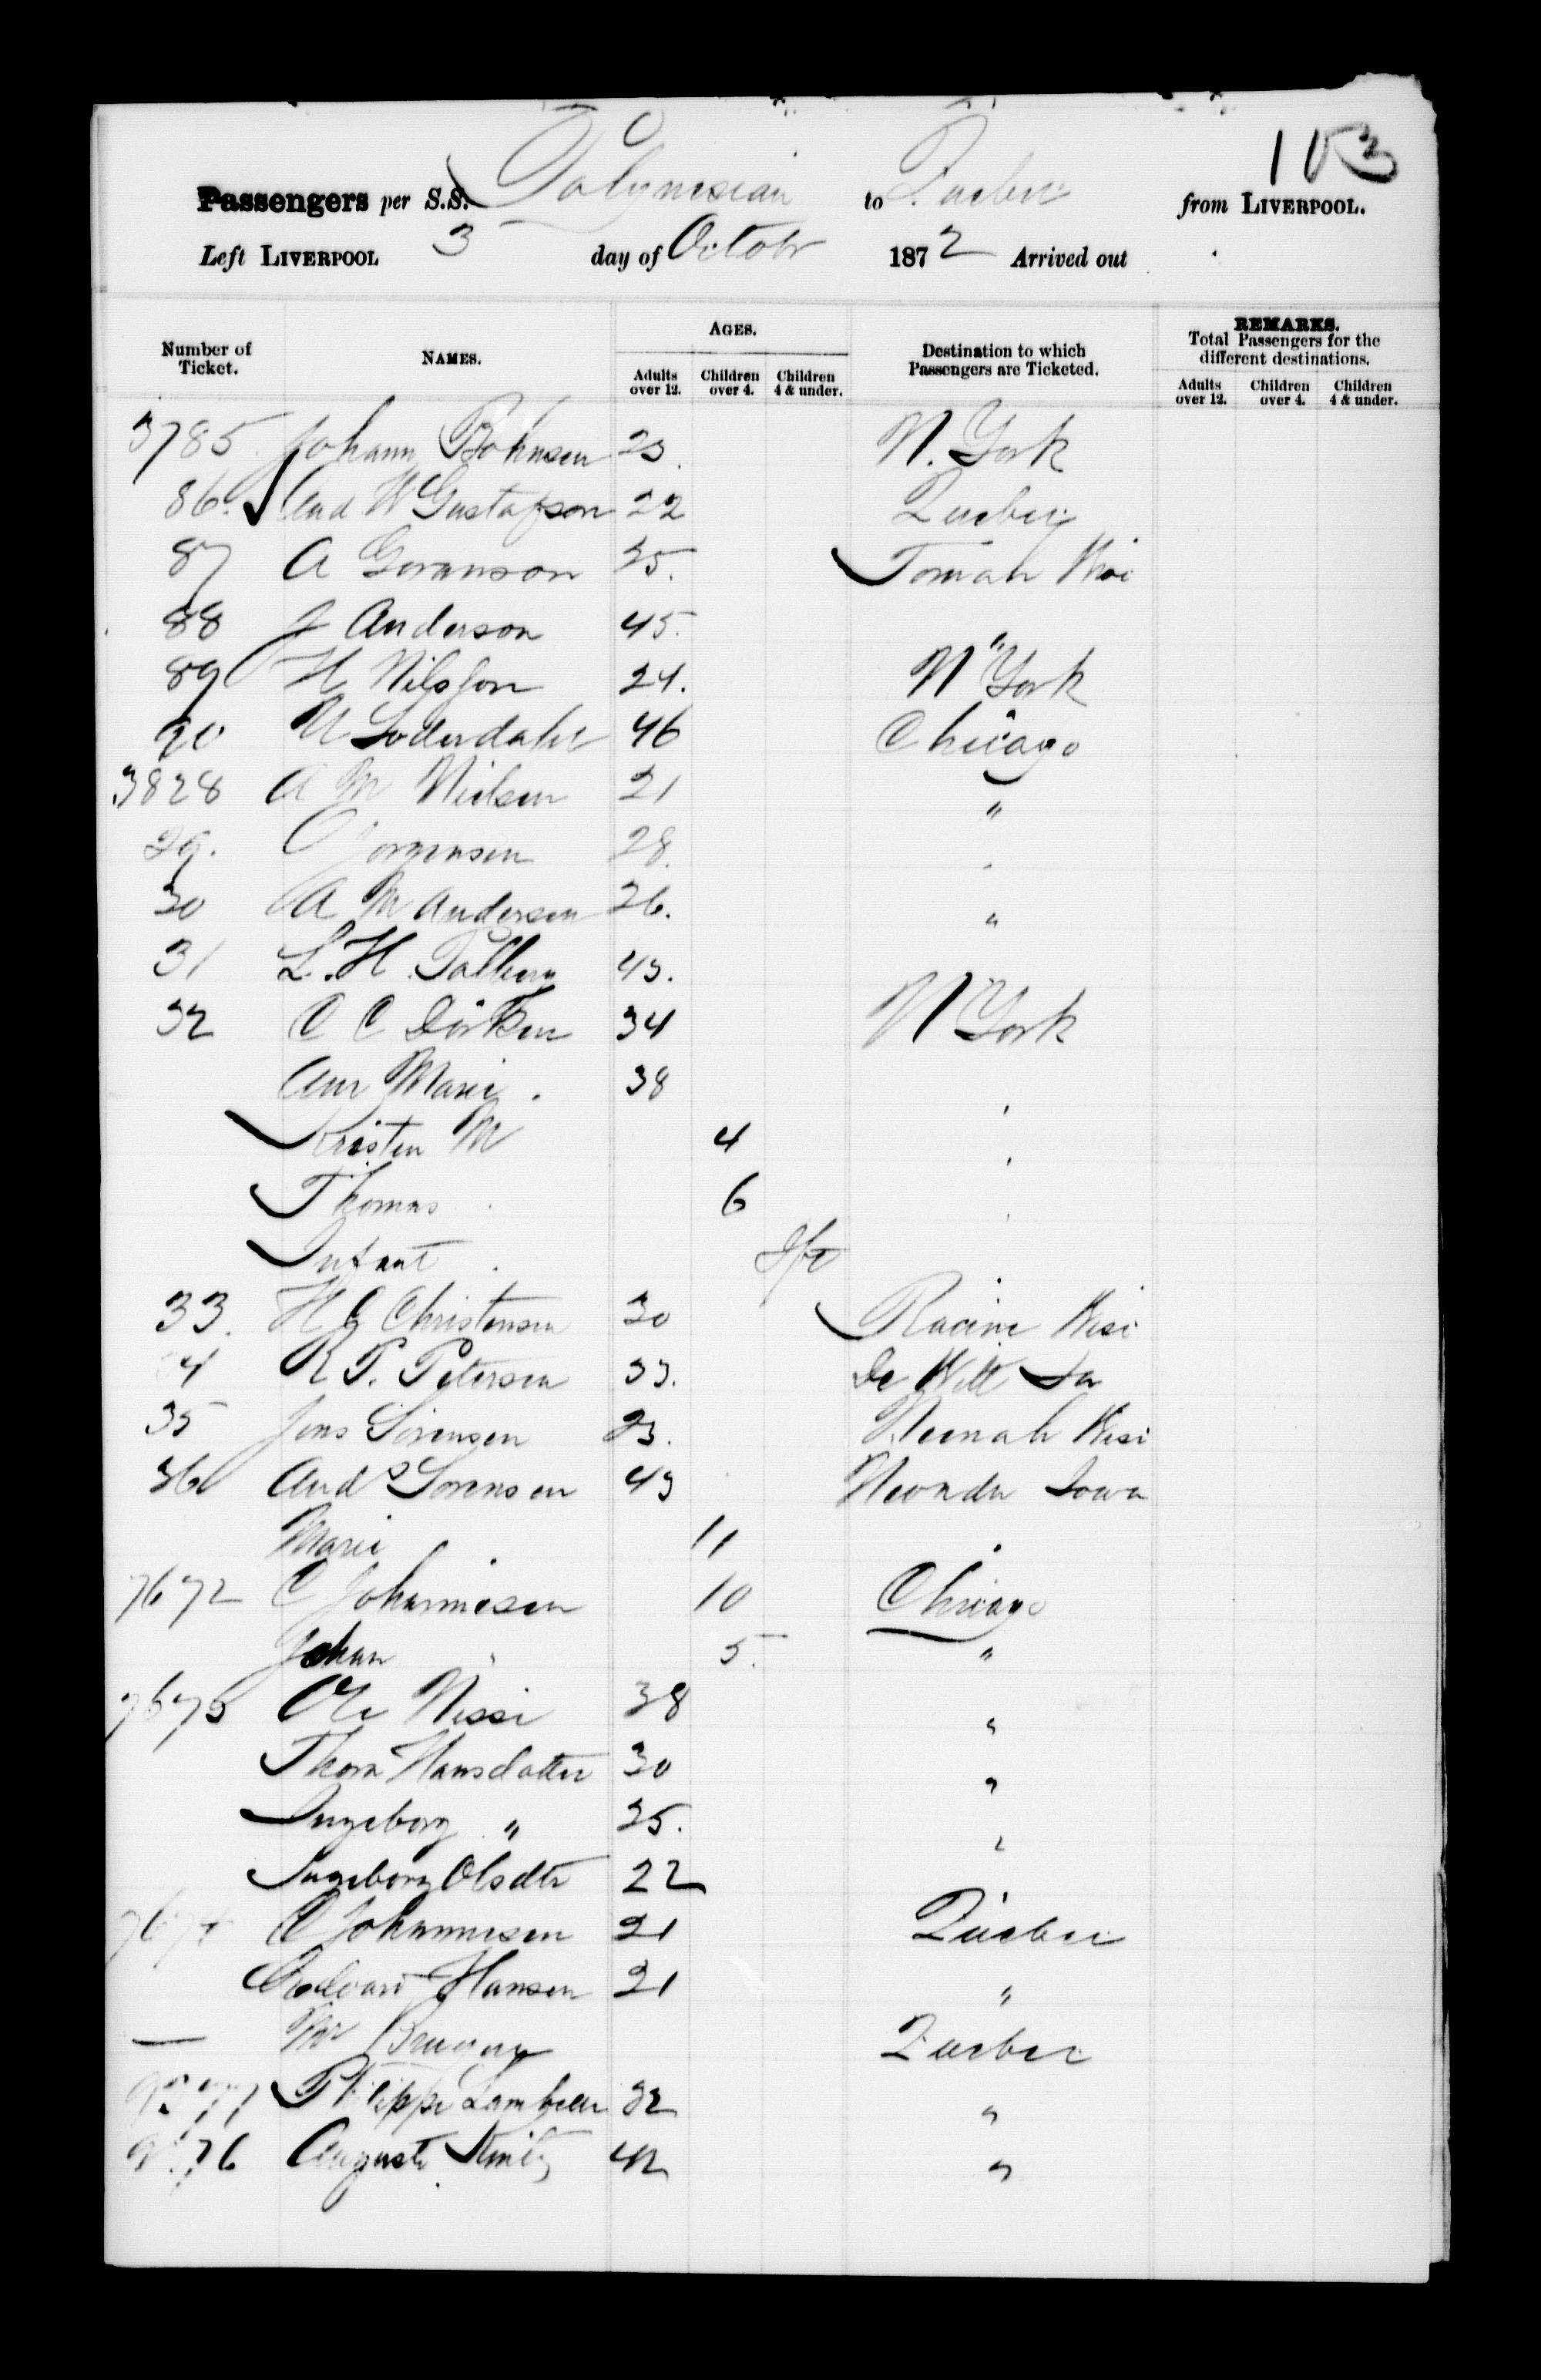 103
Passengers per S.S. Polynesian to Quebec from LIVERPOOL.
Left LIVERPOOL 3 day of Octobr 1872 Arrived out
Number of Ticket. NAMES. AGES. Destination to which Passengers are Ticketed. REMARKS. Total Passengers for the different destinations.
Adults over 12. Children over 4. Children 4 & under. Adults over 12. Children over 4. Children 4 & under.
3785 Johann Bohnsen 23 N. York
86 And W Gustafson 22 Quebec
87 A Goranson 25. Tomah Wisc
88 J Anderson 45. "
89 H Nilsson 24. N York
90 N Soderdahl 46 Chicago
3828 A M Nielsen 21 "
29. Jorgensen 28. "
30 A M Andersen 26. "
31 L. H. 43. "
32 C C 34 N York
Ann Marie 38 "
Kristen M 4 "
Thomas 6 "
Infant Inft "
33. H C Christensen 30 Racine Wisc
34 R P. Petersen 33. De Witt Ia
35 Jens Sorensen 23. Neenah Wisc
36 And Sorensen 43 Nevada Iowa
Marie 11 "
7672 C Johannesen 10 Chicago
Johan " 5. "
7673 Ole Nissi 38 "
Thora Hansdatter 30 "
Ingeborg " 25. "
Ingeborg Olsdtr 22 "
7674 C Johannesen 21 Quebec
Hansen 21 "
— Mr Quebec
77 Philippe 32 "
76 Auguste 42 "